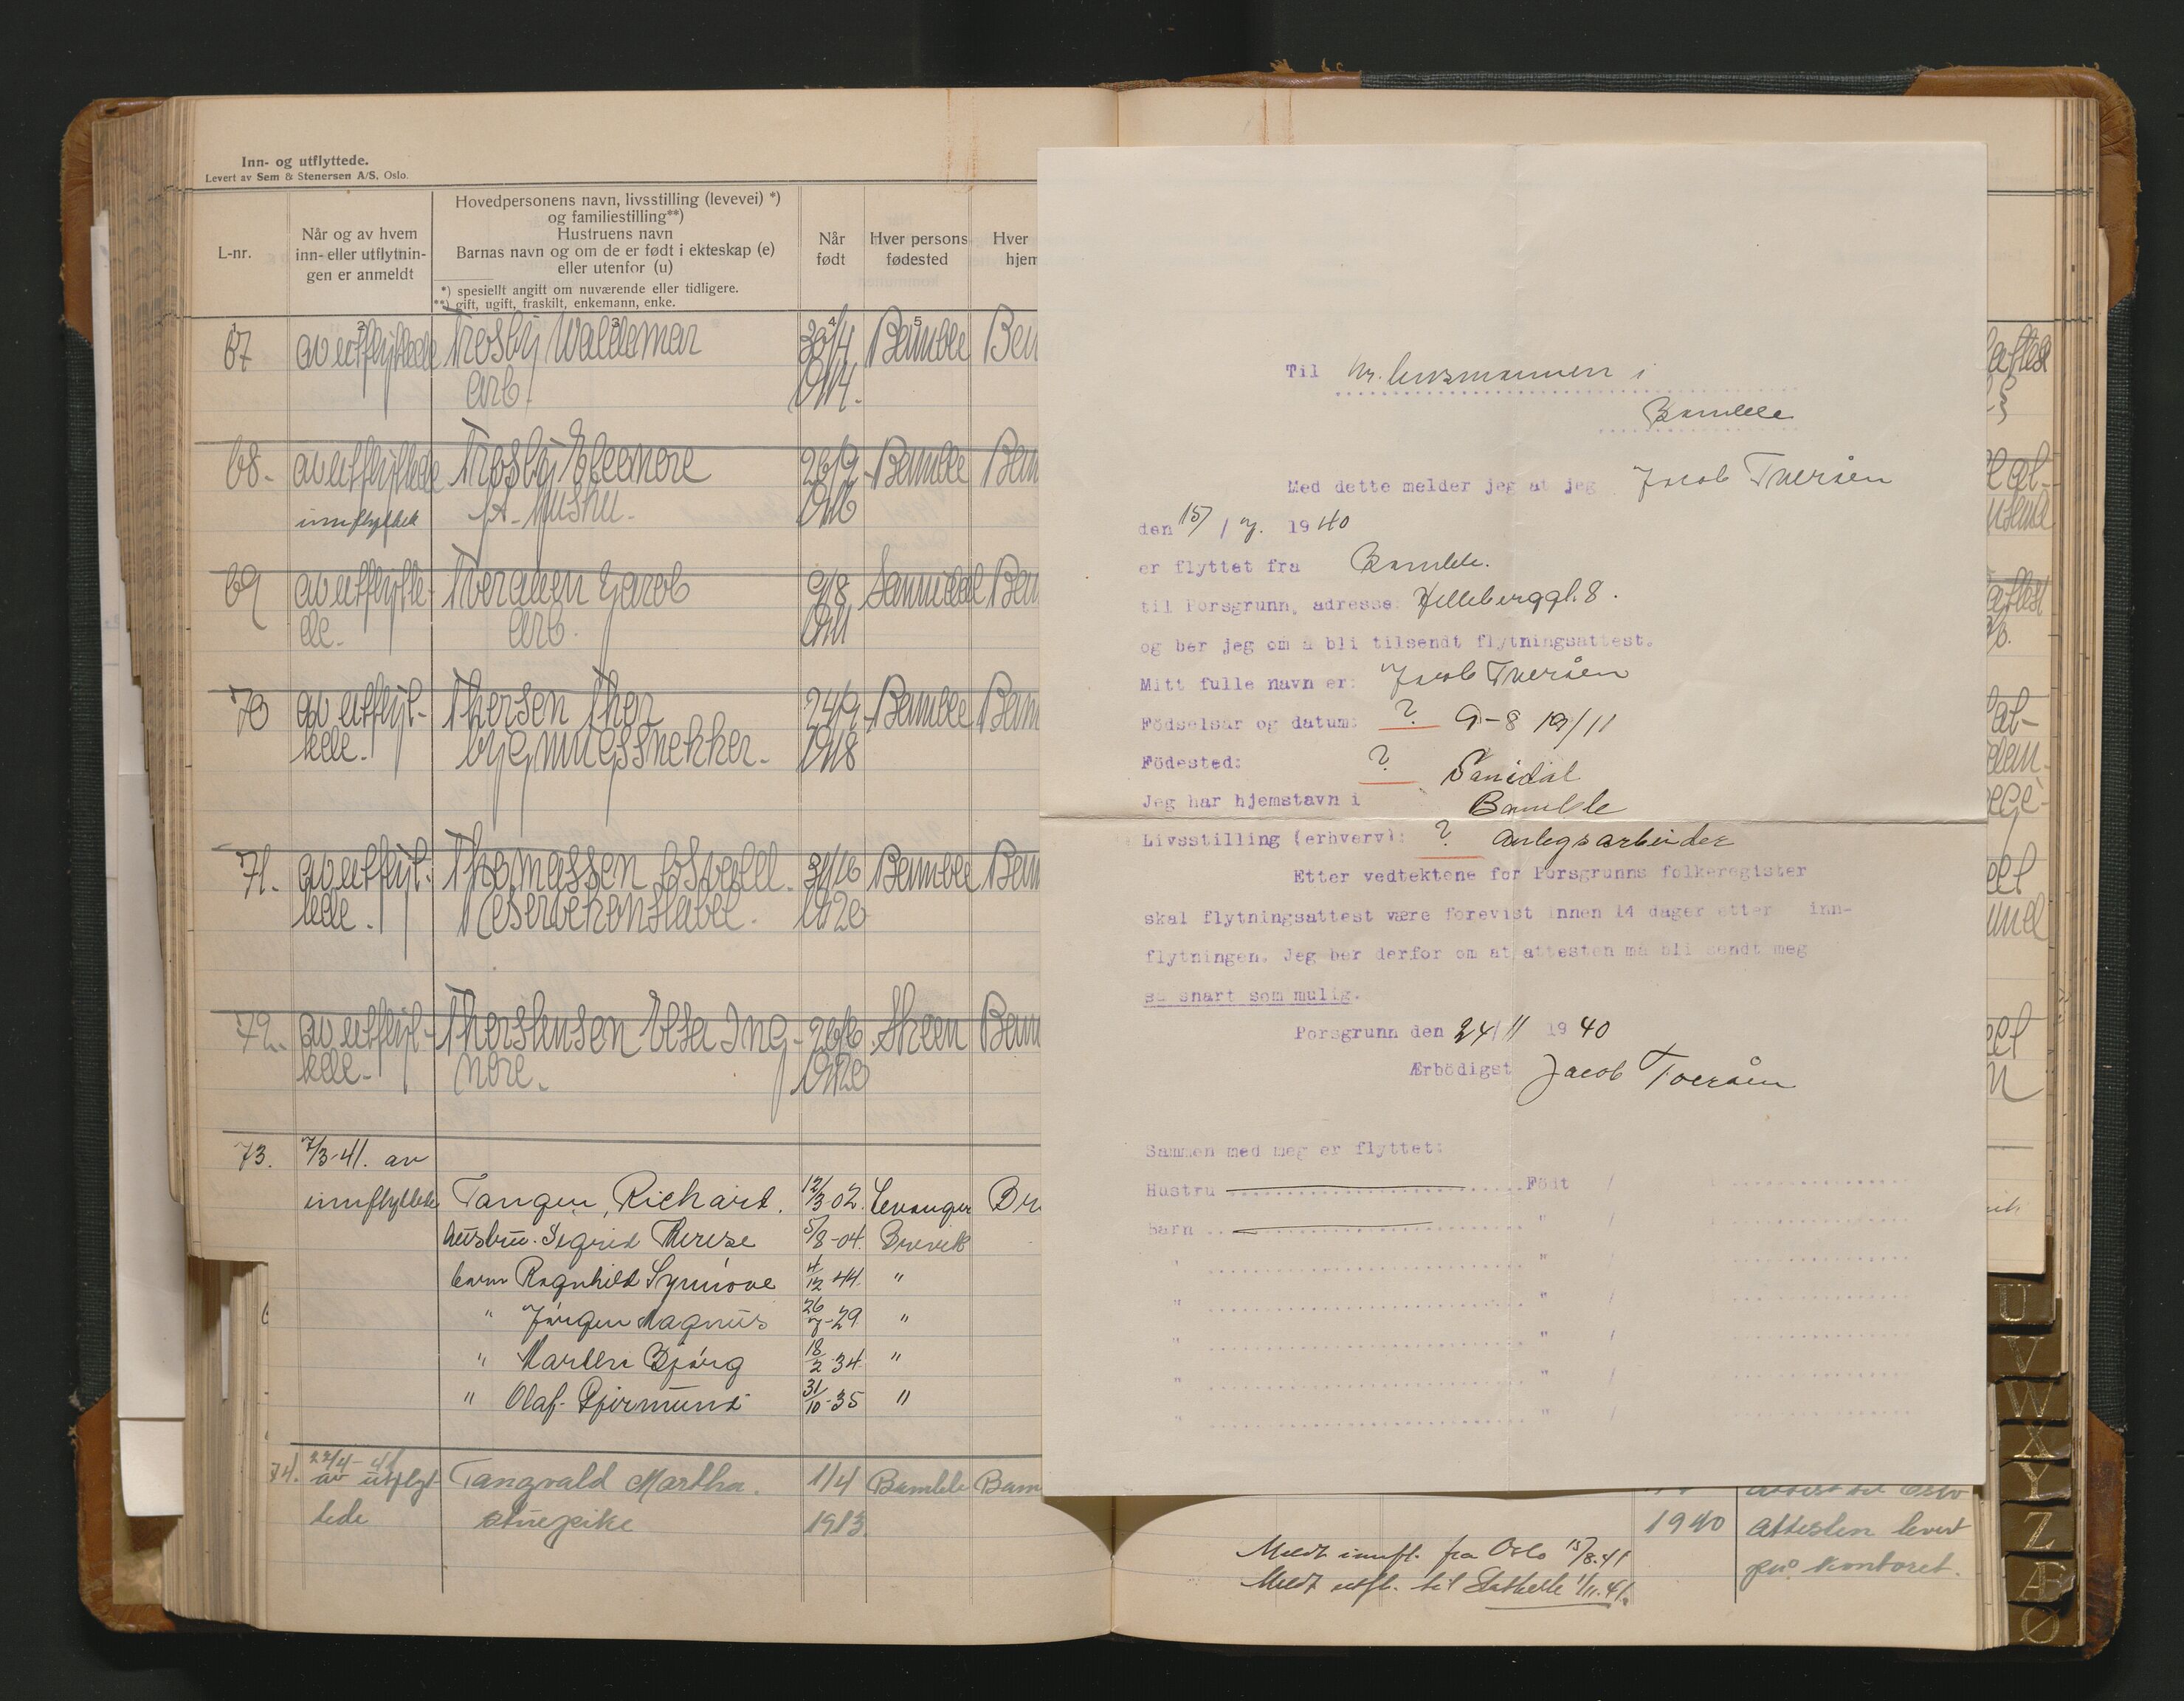 Inn- og utflyttede.
Levert av Sem & Stenersen A/S, Oslo.
L-nr.
Når og av hvem
inn- eller utflytnin-
gen er anmeldt
Hovedpersonens navn, livsstilling (levevei) *)
og familiestilling**)
Hustruens navn
Barnas navn og om de er født i ekteskap (e)
eller utenfor (u)
*) spesiellt angitt om nuværende eller tidligere.
**) gift, ugift, fraskilt, enkemann, enke.
Når
født
Hver persons
fødested
Hver
hjem
1 2 3 4 5
67 av utflyttede Trosby Waldemar 30/4 Bamble Bam
arb. 1914.
68- av utflyttede Trosby Eleonore 26/9 Bamble Bam
innflyttet 1916
69 av utflytte- Tveraaen Jacob 9/8 Sannidal Bam
de. arb. 1911
70 av utflyt- Thorsen Thor 24/9 Bamble Bam
tede. bygningssnekker. 1918
71. av utflyt- Thomassen Osvald. 31/10 Bamble Bam
tede. Reservekonstabel. 1920
72. av utflyt- Thorstensen Elsa Ing- 26/6 Skeen Bam
tede- nore. 1920
73. 7/3-41. av
innflyttede Tangen, Richard. 12/3-02. Levanger Br
hustru. Sigrid Therese 5/8-04. Brevik
barn Ragnhild Synnöve 4/12 44. "
" Jörgen Magnus 26/7-29 "
" Marten Bjørg 18/2 34 "
" Olaf Gjermund 31/10-35 "
74. 22/4-41
av utflyt- Tangvald Martha. 1/4 Bamble Bam
tede stuepike 1913
Til Hr. lensmannen i
Bamble
Med dette melder jeg at jeg Jacob Tveråen
den 15/ 7. 1940
er flyttet fra Bamble.
til Porsgrunn, adresse: Helleberggt. 8.
og ber jeg om å bli tilsendt flytningsattest.
Mitt fulle navn er: Jacob Tveråen
Födselsår og datum: ? 9-8 19/11
Födested: ? Sanidal
Jeg har hjemstavn i Bamble
Livsstilling (erhverv): ? Anlegsarbeider
Etter vedtektene for Porsgrunns folkeregister
skal flytningsattest være forevist innen 14 dager etter inn-
flytningen. Jeg ber derfor om at attesten må bli sendt meg
så snart som mulig.
Porsgrunn den 24/11 1940
Ærbödigst Jacob Tveråen
Sammen med meg er flyttet:
Hustru Födt /
Barn " /
" " /
" " /
" " /
" " /
" " /
attest til Oslo
1940 attesten levert
på kontoret.
Meldt innfl. fra Oslo 15/8.41
Meldt utfl. til Stathelle 1/11.41.
U
V
W
X
Y
Z
Æ
Ø